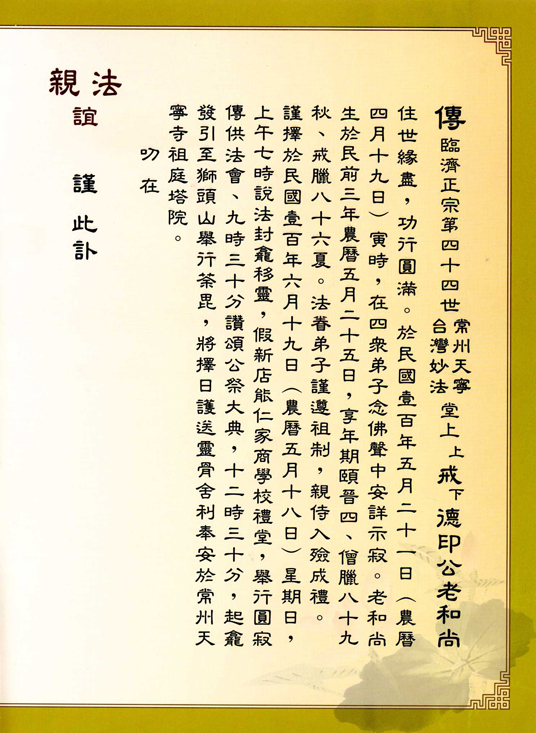 傳臨濟正宗第四十四世 常州天寧 台灣妙法 堂上 上戒下德印公老和尚
住世緣盡，功行圓滿。於民國壹百年五月二十一日（農曆
四月十九日）寅時，在四衆弟子念佛聲中安詳示寂。老和尚
生於民前三年農曆五月二十五日，享年期頤晉四、僧臘八十九
秋、戒臘八十六夏。法眷弟子謹遵祖制，親侍入殮成禮。
謹擇於民國壹百年六月十九日（農曆五月十八日）星期日，
上午七時說法封龕移靈，假新店能仁家商學校禮堂，舉行圓寂
傳供法會、九時三十分讚頌公祭大典，十二時三十分，起龕
發引至獅頭山舉行荼毘，將擇日護送靈骨舍利奉安於常州天
寧寺祖庭塔院。
叨在
法
親誼 謹此訃